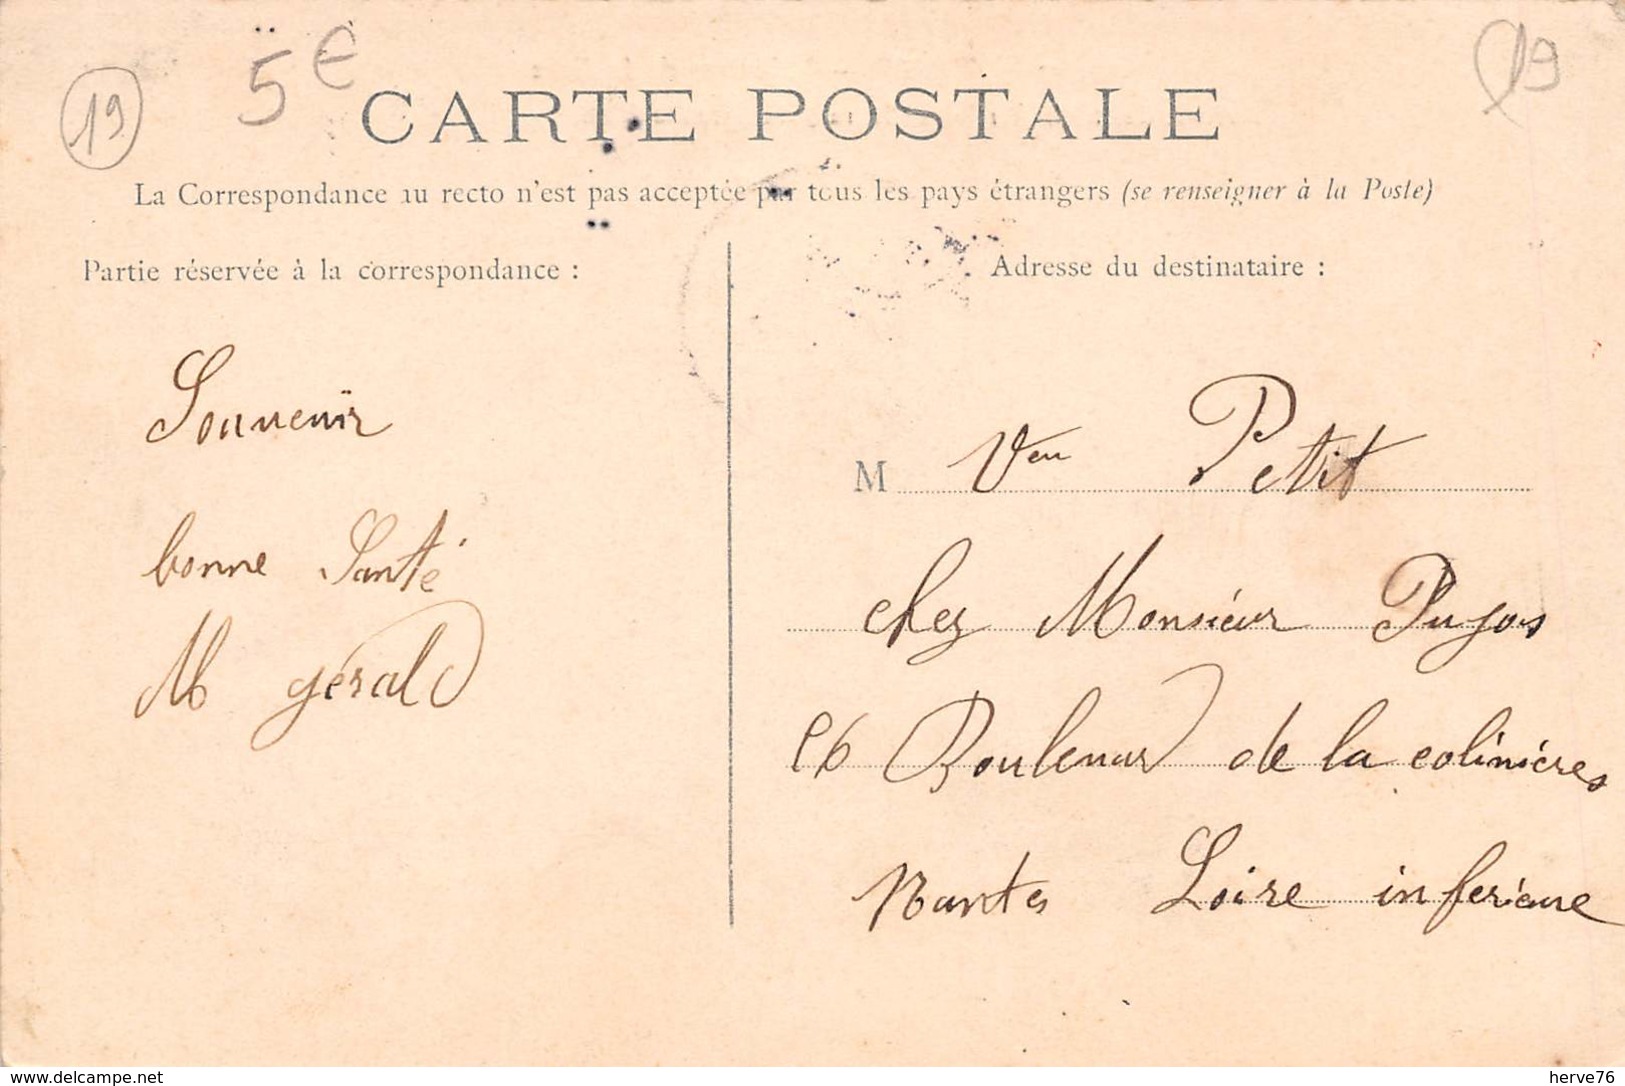 19
5€
19
CARTE POSTALE
La Correspondance au recto n'est pas acceptée par tous les pays étrangers (se renseigner à la Poste)
Partie réservée à la correspondance :
Souvenir
bonne Santé
M gérald
Adresse du destinataire :
M Veu Petit
chez Monsieur Pujos
Boulevard de la colinières
Nantes Loire inférieure
www.delcampe.net
herve76